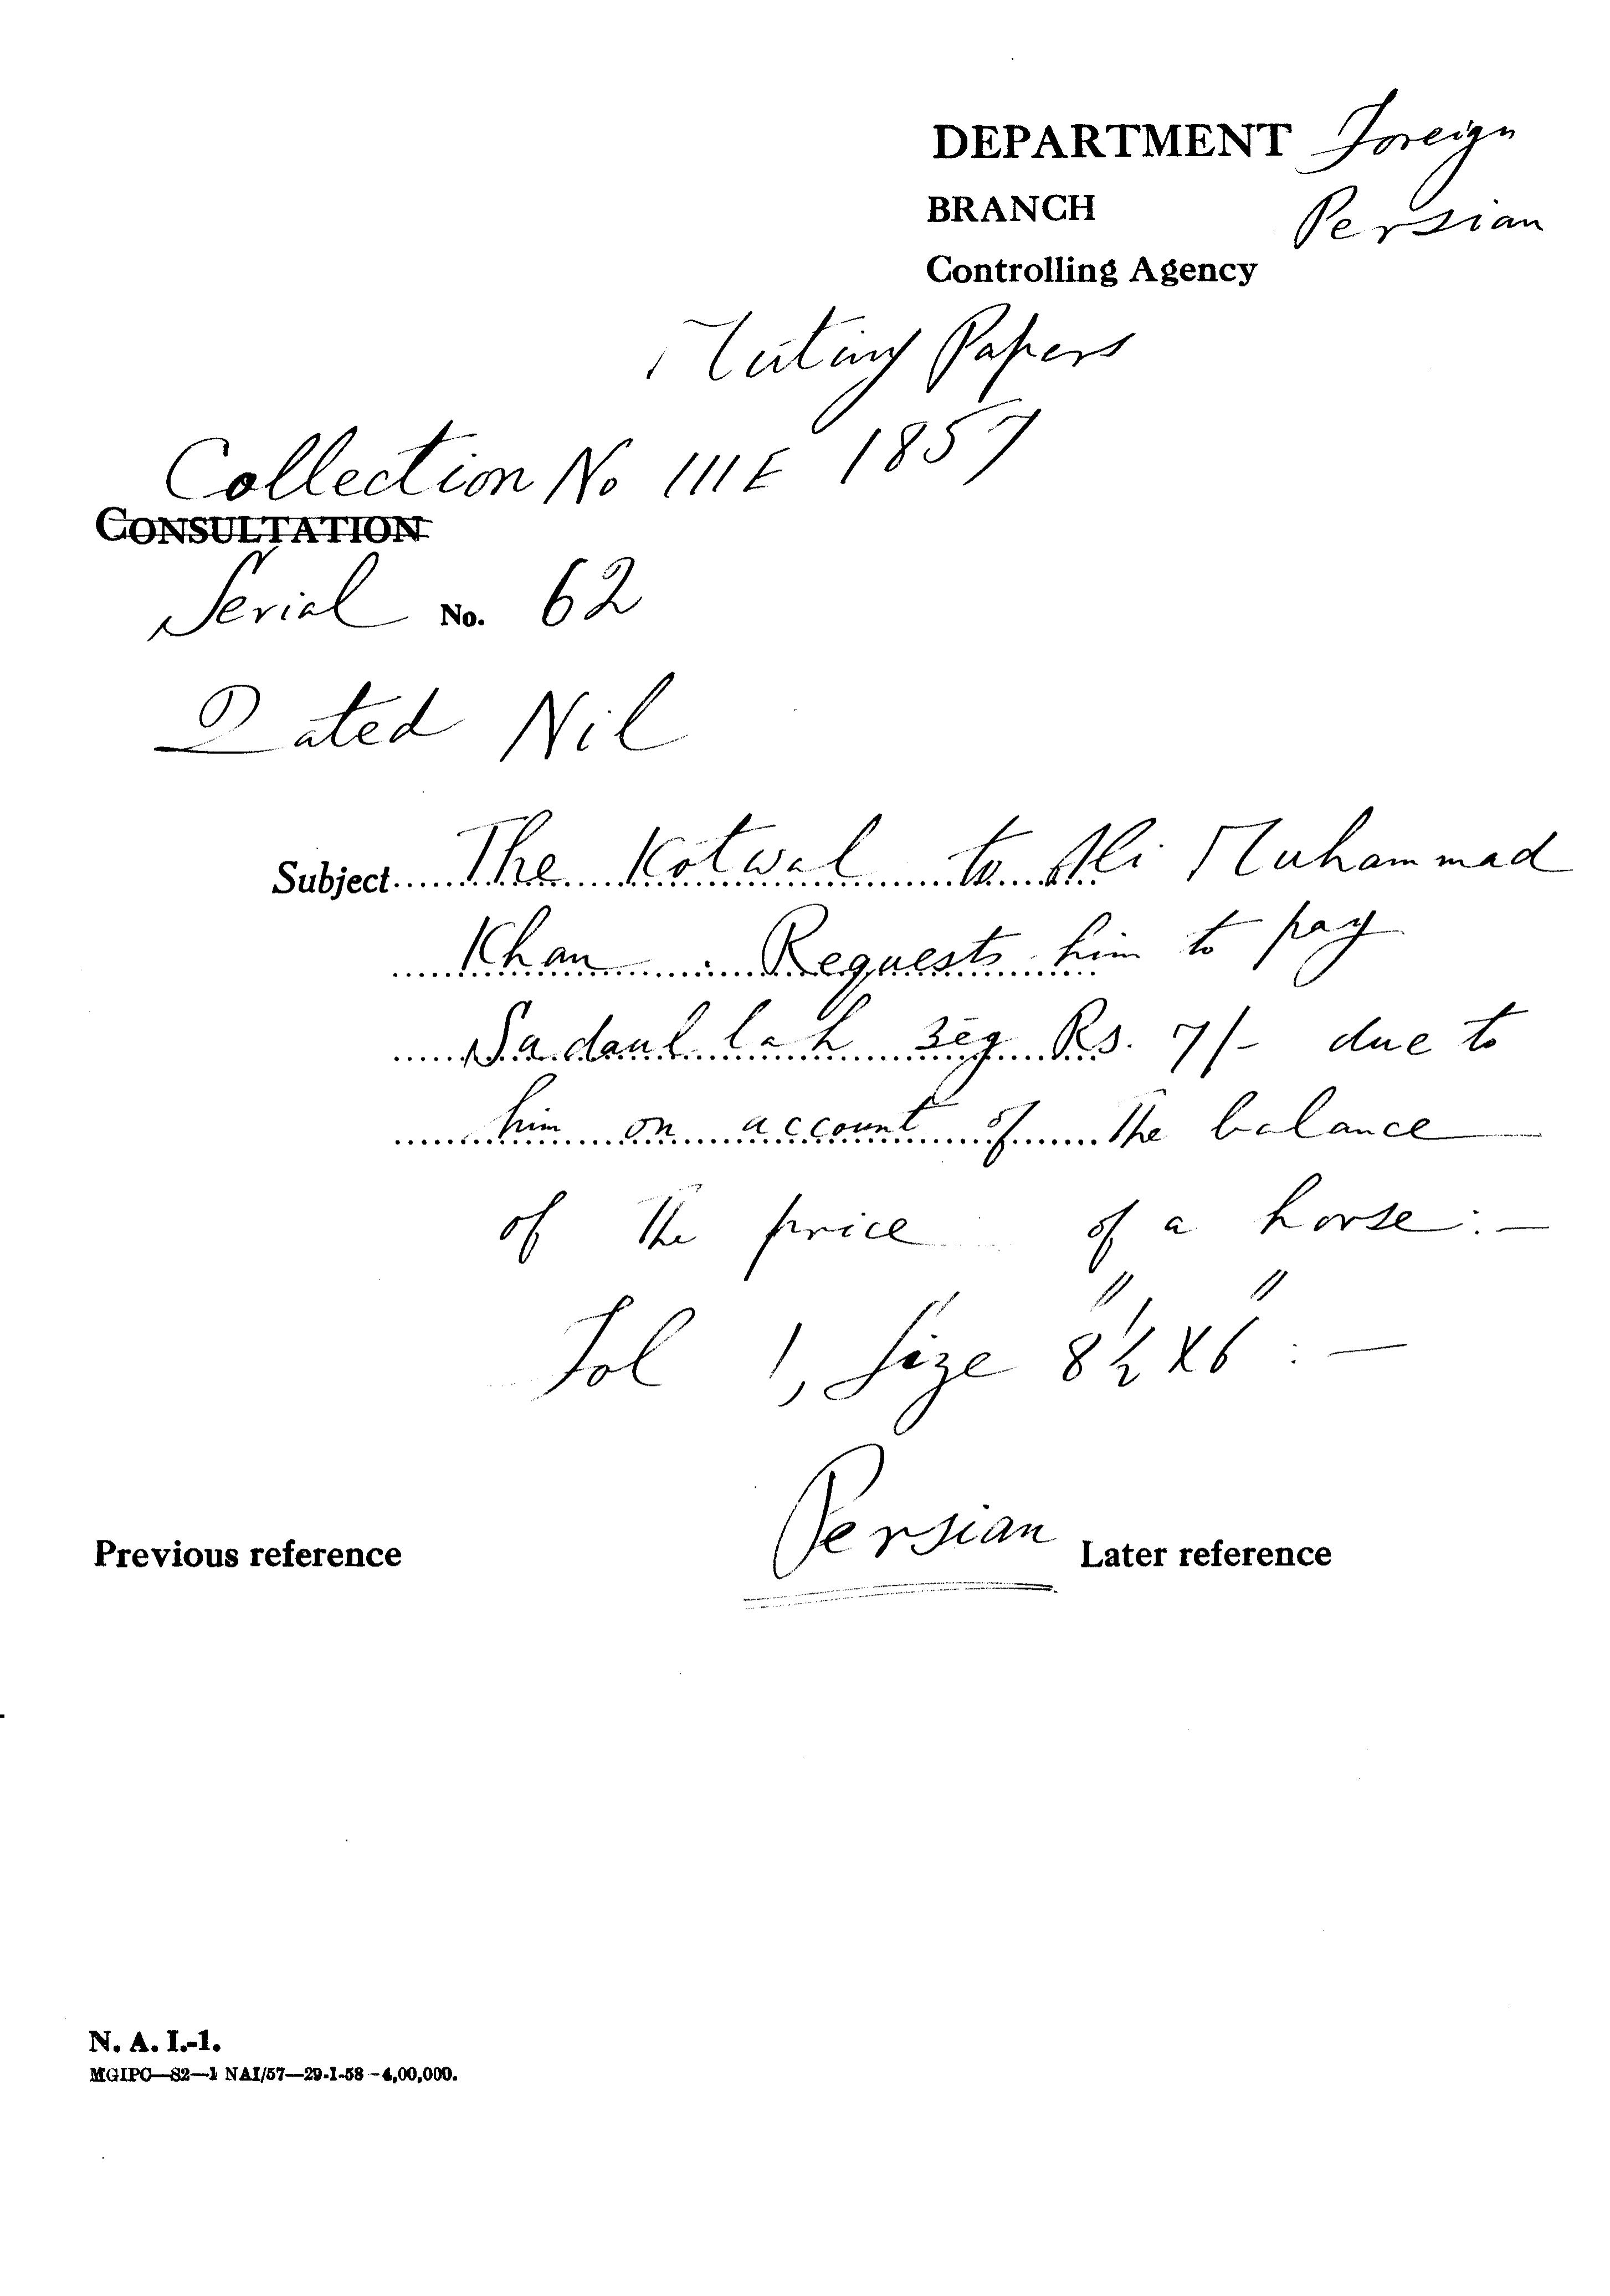 DEPARTMENT Foreign
BRANCH Persian
Controlling Agency
Mutiny Papers
Collection No III E 1857
CONSULTATION
Serial No. 62
Dated Nil
Subject.....The Kotwal to Ali Muhammad
Khan. Requests him to pay
Sadaullah Beg Rs. 7/- due to
him on account of the balance
of the price of a horse:—
Fol 1, Size 8½" X 6":—
Persian
Previous reference Later reference
N. A. I.-1.
MGIPC—S2—1 NAI/57—29-1-58—4,00,000.